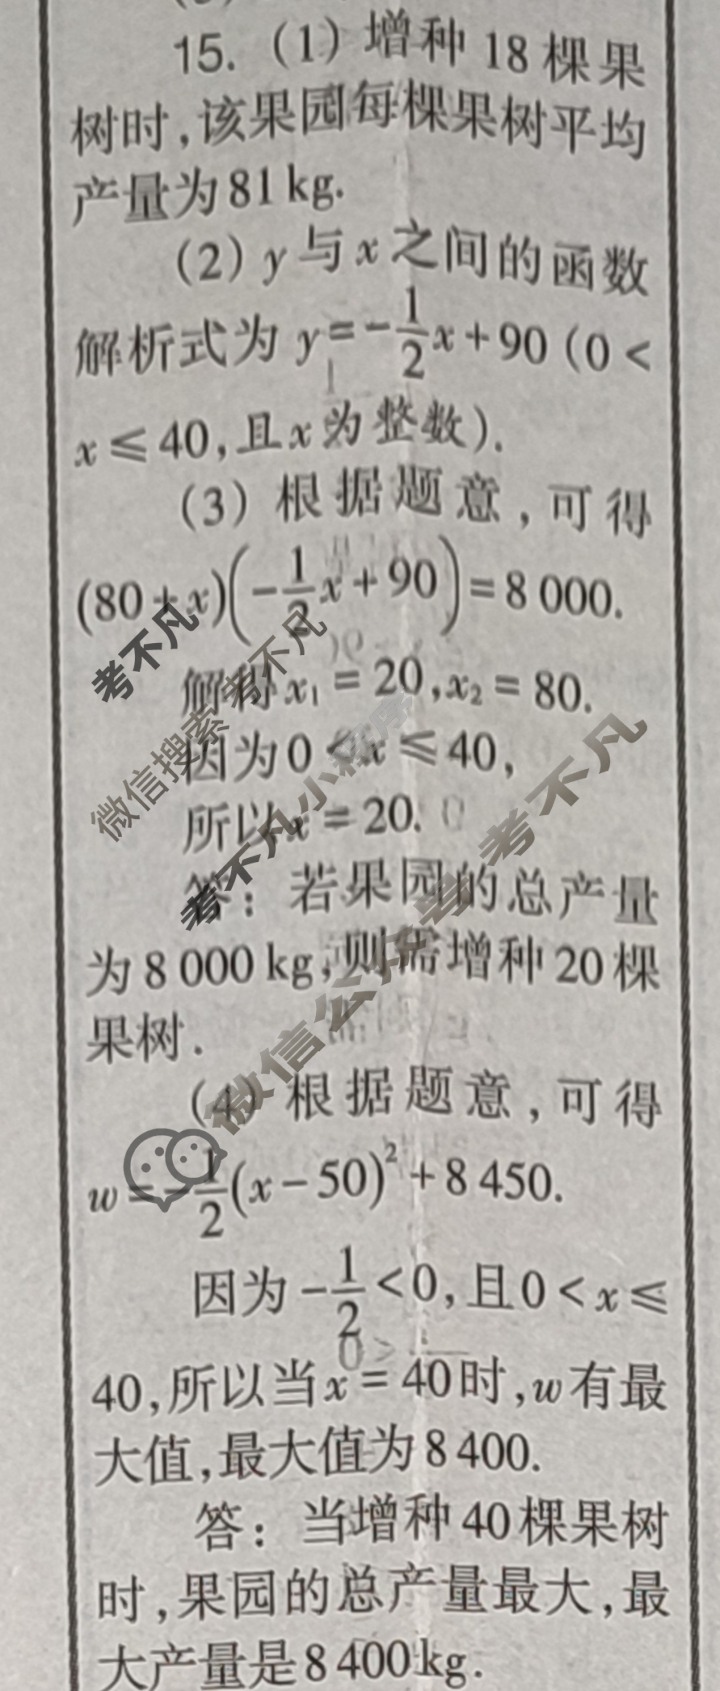 15. (1) 增种 18 棵果
树时,该果园每棵果树平均
产量为 81 kg.
(2) y 与 x 之间的函数
解析式为 y=-\frac{1}{2}x+90 (0<
x≤40,且x为整数).
(3) 根据题意,可得
(80+x)(-\frac{1}{2}x+90)=8 000.
解得 x₁=20,x₂=80.
因为 0<x≤40,
所以 x=20.
答:若果园的总产量
为 8 000 kg,则需增种 20 棵
果树.
(4) 根据题意,可得
w=-\frac{1}{2}(x-50)²+8 450.
因为 -\frac{1}{2}<0,且 0<x≤
40,所以当 x=40 时,w 有最
大值,最大值为 8 400.
答:当增种 40 棵果树
时,果园的总产量最大,最
大产量是 8 400 kg.
考不凡
微信搜索 考不凡
考不凡小程序
微信公众号 考不凡